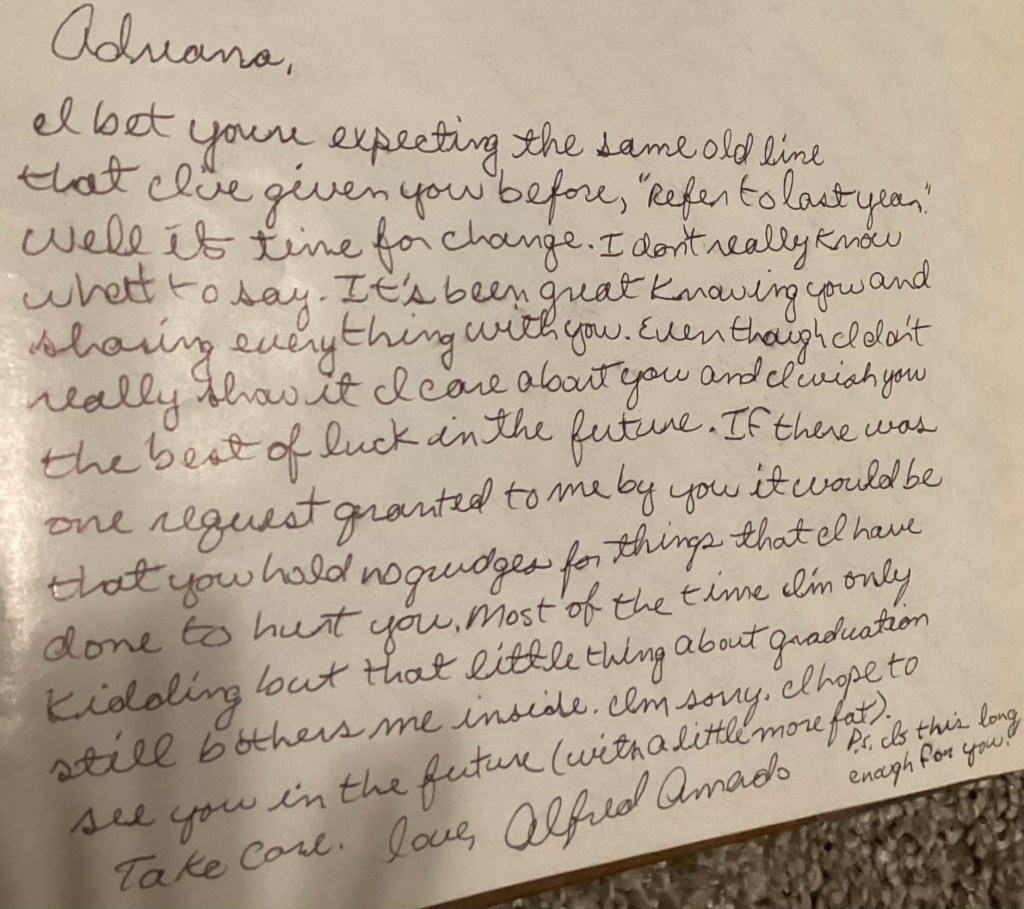 Adriana,
I bet youre expecting the same old line
that I've given you before, "Refer to last year."
Well its time for change. I don't really know
whatt to say. It's been great knowing you and
sharing everything with you. Even though I don't
really show it I care about you and I wish you
the best of luck in the future. If there was
one request granted to me by you it would be
that you hold no grudges for things that I have
done to hurt you. Most of the time I'm only
kidding but that little thing about graduation
still bothers me inside. Im sorry. I hope to
see you in the future (with a little more fat).
Take Care. Love, Alfred Amado
P.s. Is this long
enough for you?